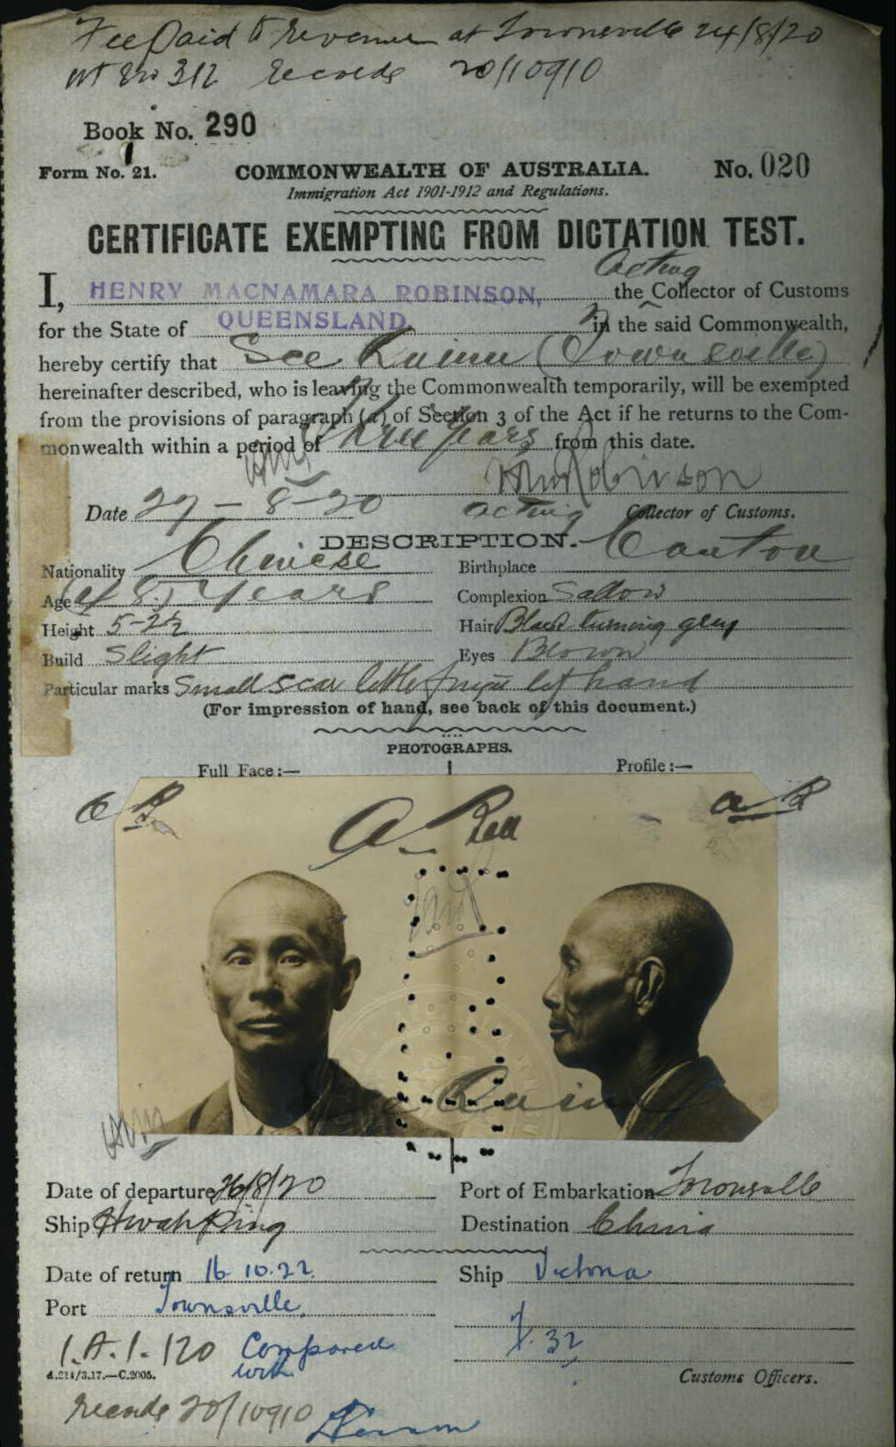 Fee Paid to Revenue at Townsville 24/8/20
312 Records 20/10910
Book No. 290
Form No. 21.
COMMONWEALTH OF AUSTRALIA.
No. 020
Immigration Act 1901-1912 and Regulations.
CERTIFICATE EXEMPTING FROM DICTATION TEST.
acting
I, HENRY MACNAMARA ROBINSON, the Collector of Customs
for the State of QUEENSLAND in the said Commonwealth,
hereby certify that See (Townsville)
hereinafter described, who is leaving the Commonwealth temporarily, will be exempted
from the provisions of paragraph (a) of Section 3 of the Act if he returns to the Com-
monwealth within a period of three years from this date.
Robinson
Date 27-8-20 acting Collector of Customs.
DESCRIPTION.
Nationality Chinese
Birthplace Canton
Age 48 years
Complexion Sallow
Height 5-2½
Hair Black turning grey
Build Slight
Eyes Brown
Particular marks Small scar little finger left hand
(For impression of hand, see back of this document.)
PHOTOGRAPHS.
Full Face:—
Profile:—
Date of departure 26/8/20
Port of Embarkation Townsville
Ship Hwah Ping
Destination China
Date of return 16.10.22.
Ship Victoria
Port Townsville
32
1.A.1.120 Compared
with
4.211/3.17.—C.2005.
Customs Officers.
records 20/10910